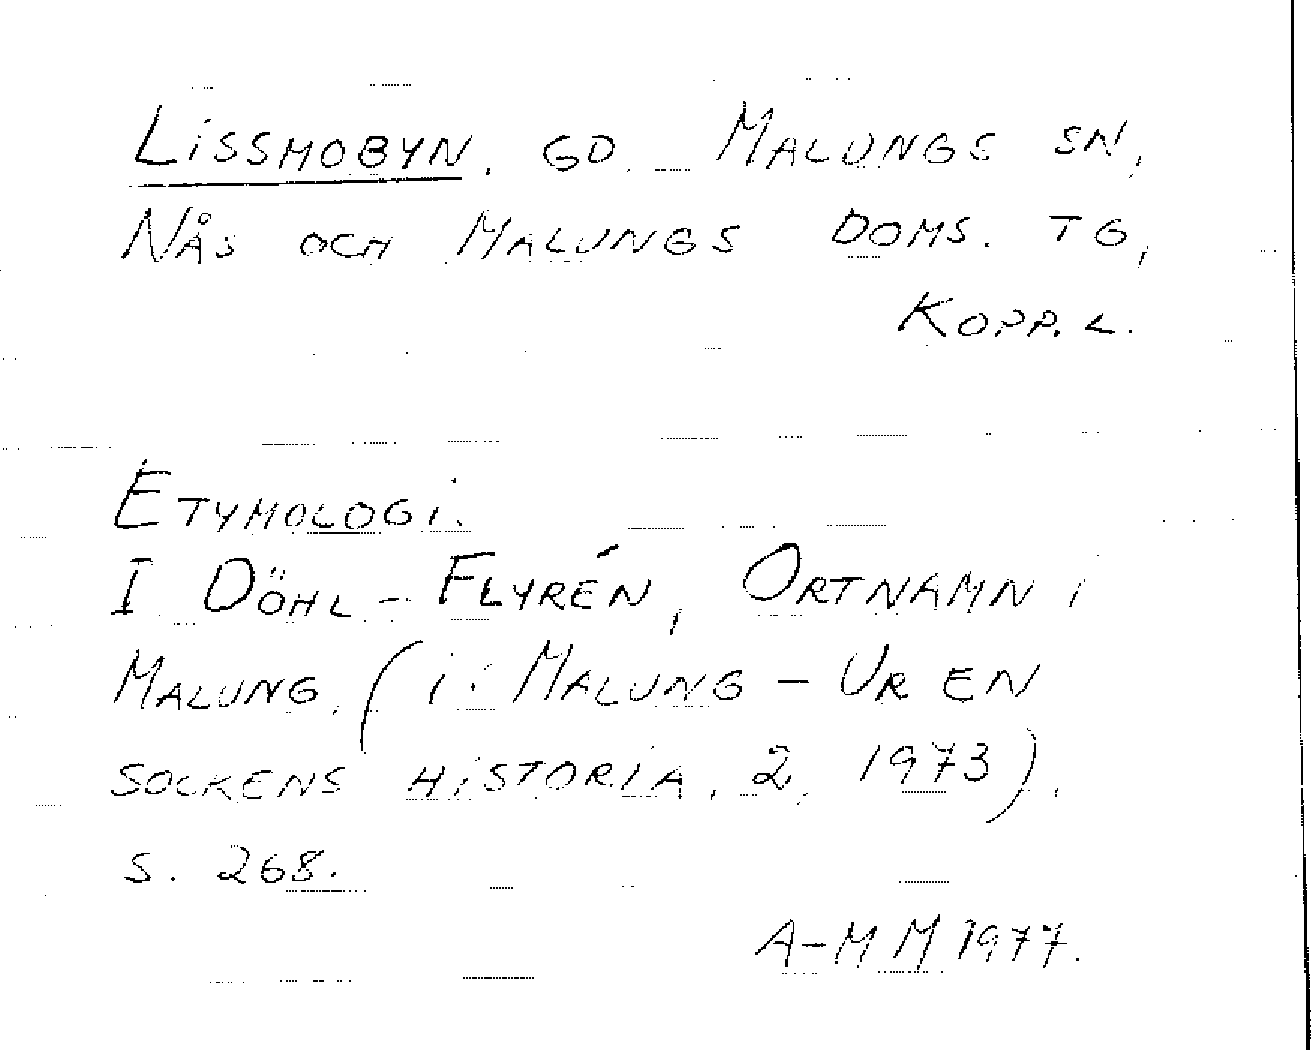 Lissmobyn, gd. Malungs sn,
Nås och Malungs doms. tg,
Kopp. l.
Etymologi.
I Döhl-Flyrén, Ortnamn i
Malung, (i: Malung - Ur en
sockens historia, 2, 1973),
s. 268.
A-M M 1977.